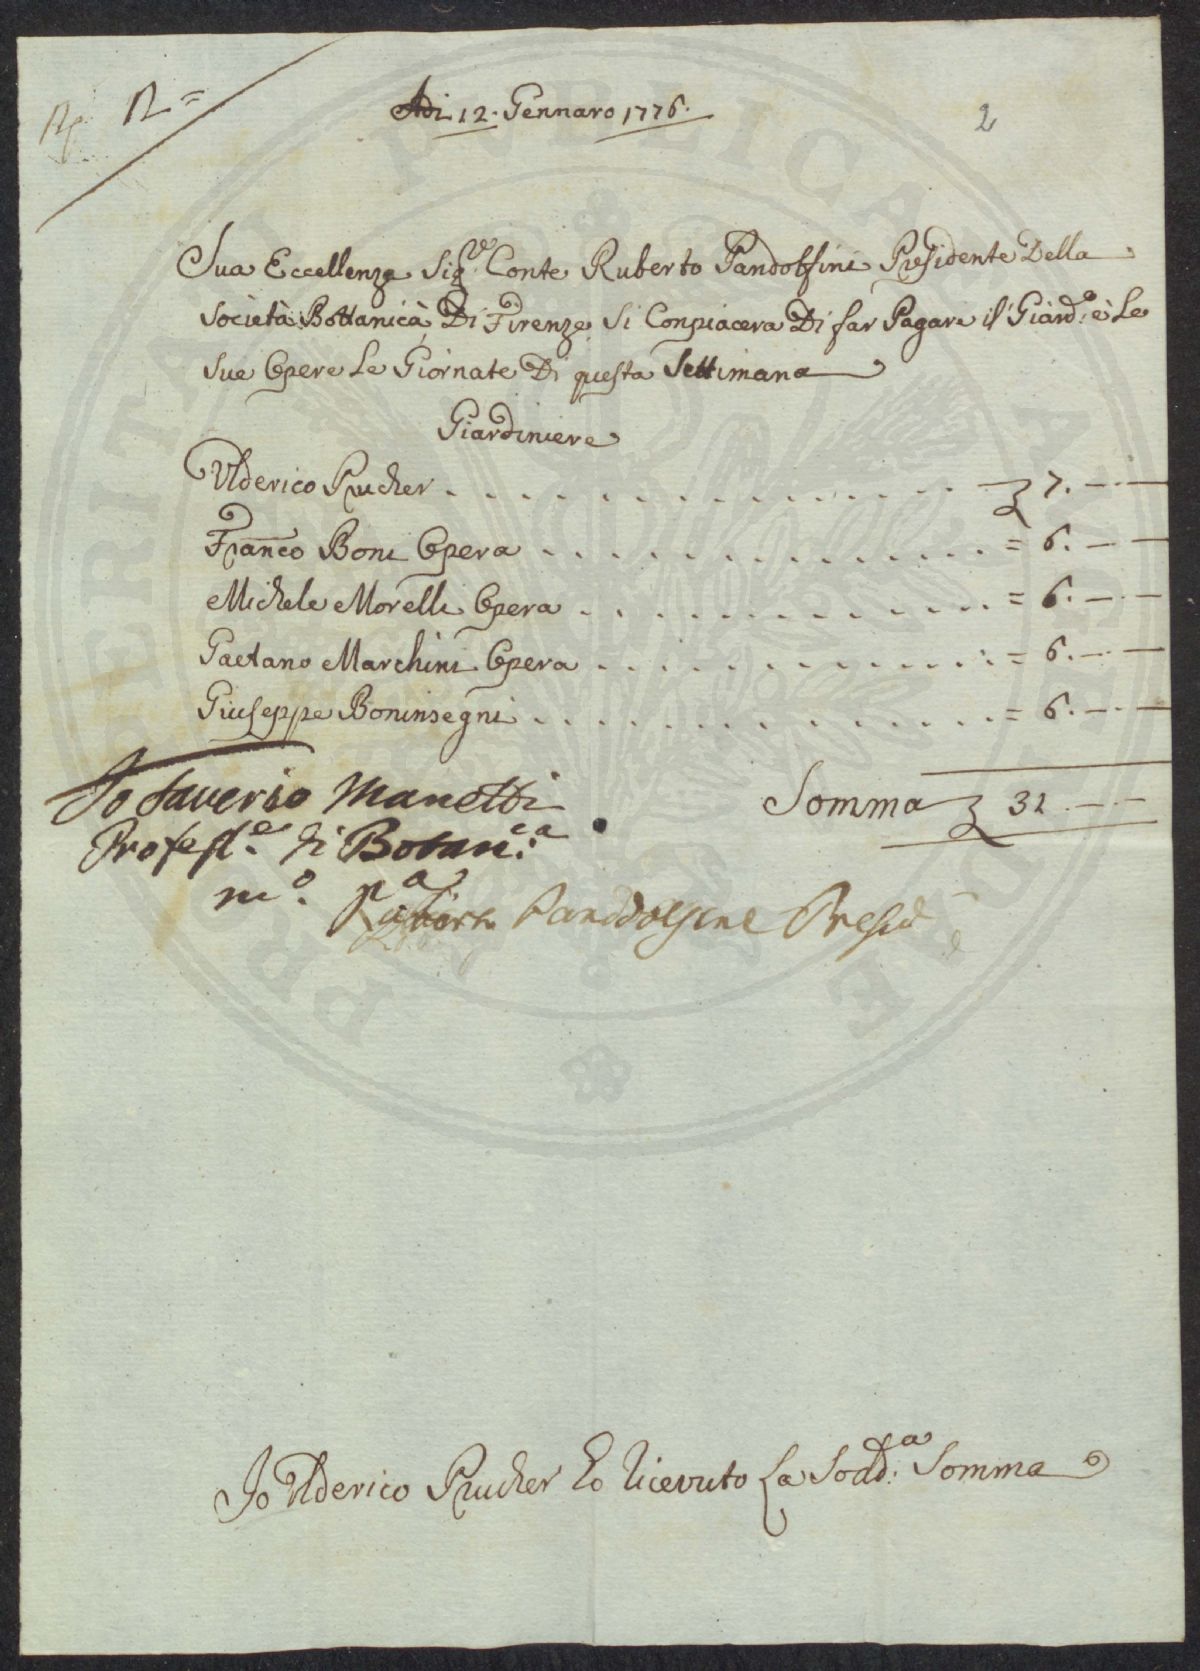 R =
Adi 12. Gennaro 1776.
2
Sua Eccellenza Sigr. Conte Ruberto Pandolfini Presidente Della
Società Bottanicà Di Firenze Si Conpiacera Di far Pagare il Giardo. è Le
Sue Opere Le Giornate Di questa Settimana
Giardiniere
Ulderico Prucker . . . . . . . . . . . . . . . . 7. — —
Franco Boni Opera . . . . . . . . . . . . . = 6. — —
Michele Morelli Opera . . . . . . . . . . . . = 6. — —
Gaetano Marchini Opera . . . . . . . . . . . = 6. — —
Giuseppe Boninsegni . . . . . . . . . . . . . = 6. — —
Somma 31 — —
Io Saverio Manetti
Profess.e di Botan.ca
mo. pa.
Ruberto Pandolfini Presid
Io Ulderico Prucker ho ricevuto La Sodd.a Somma
PERITAE PUBLICAE AMICI